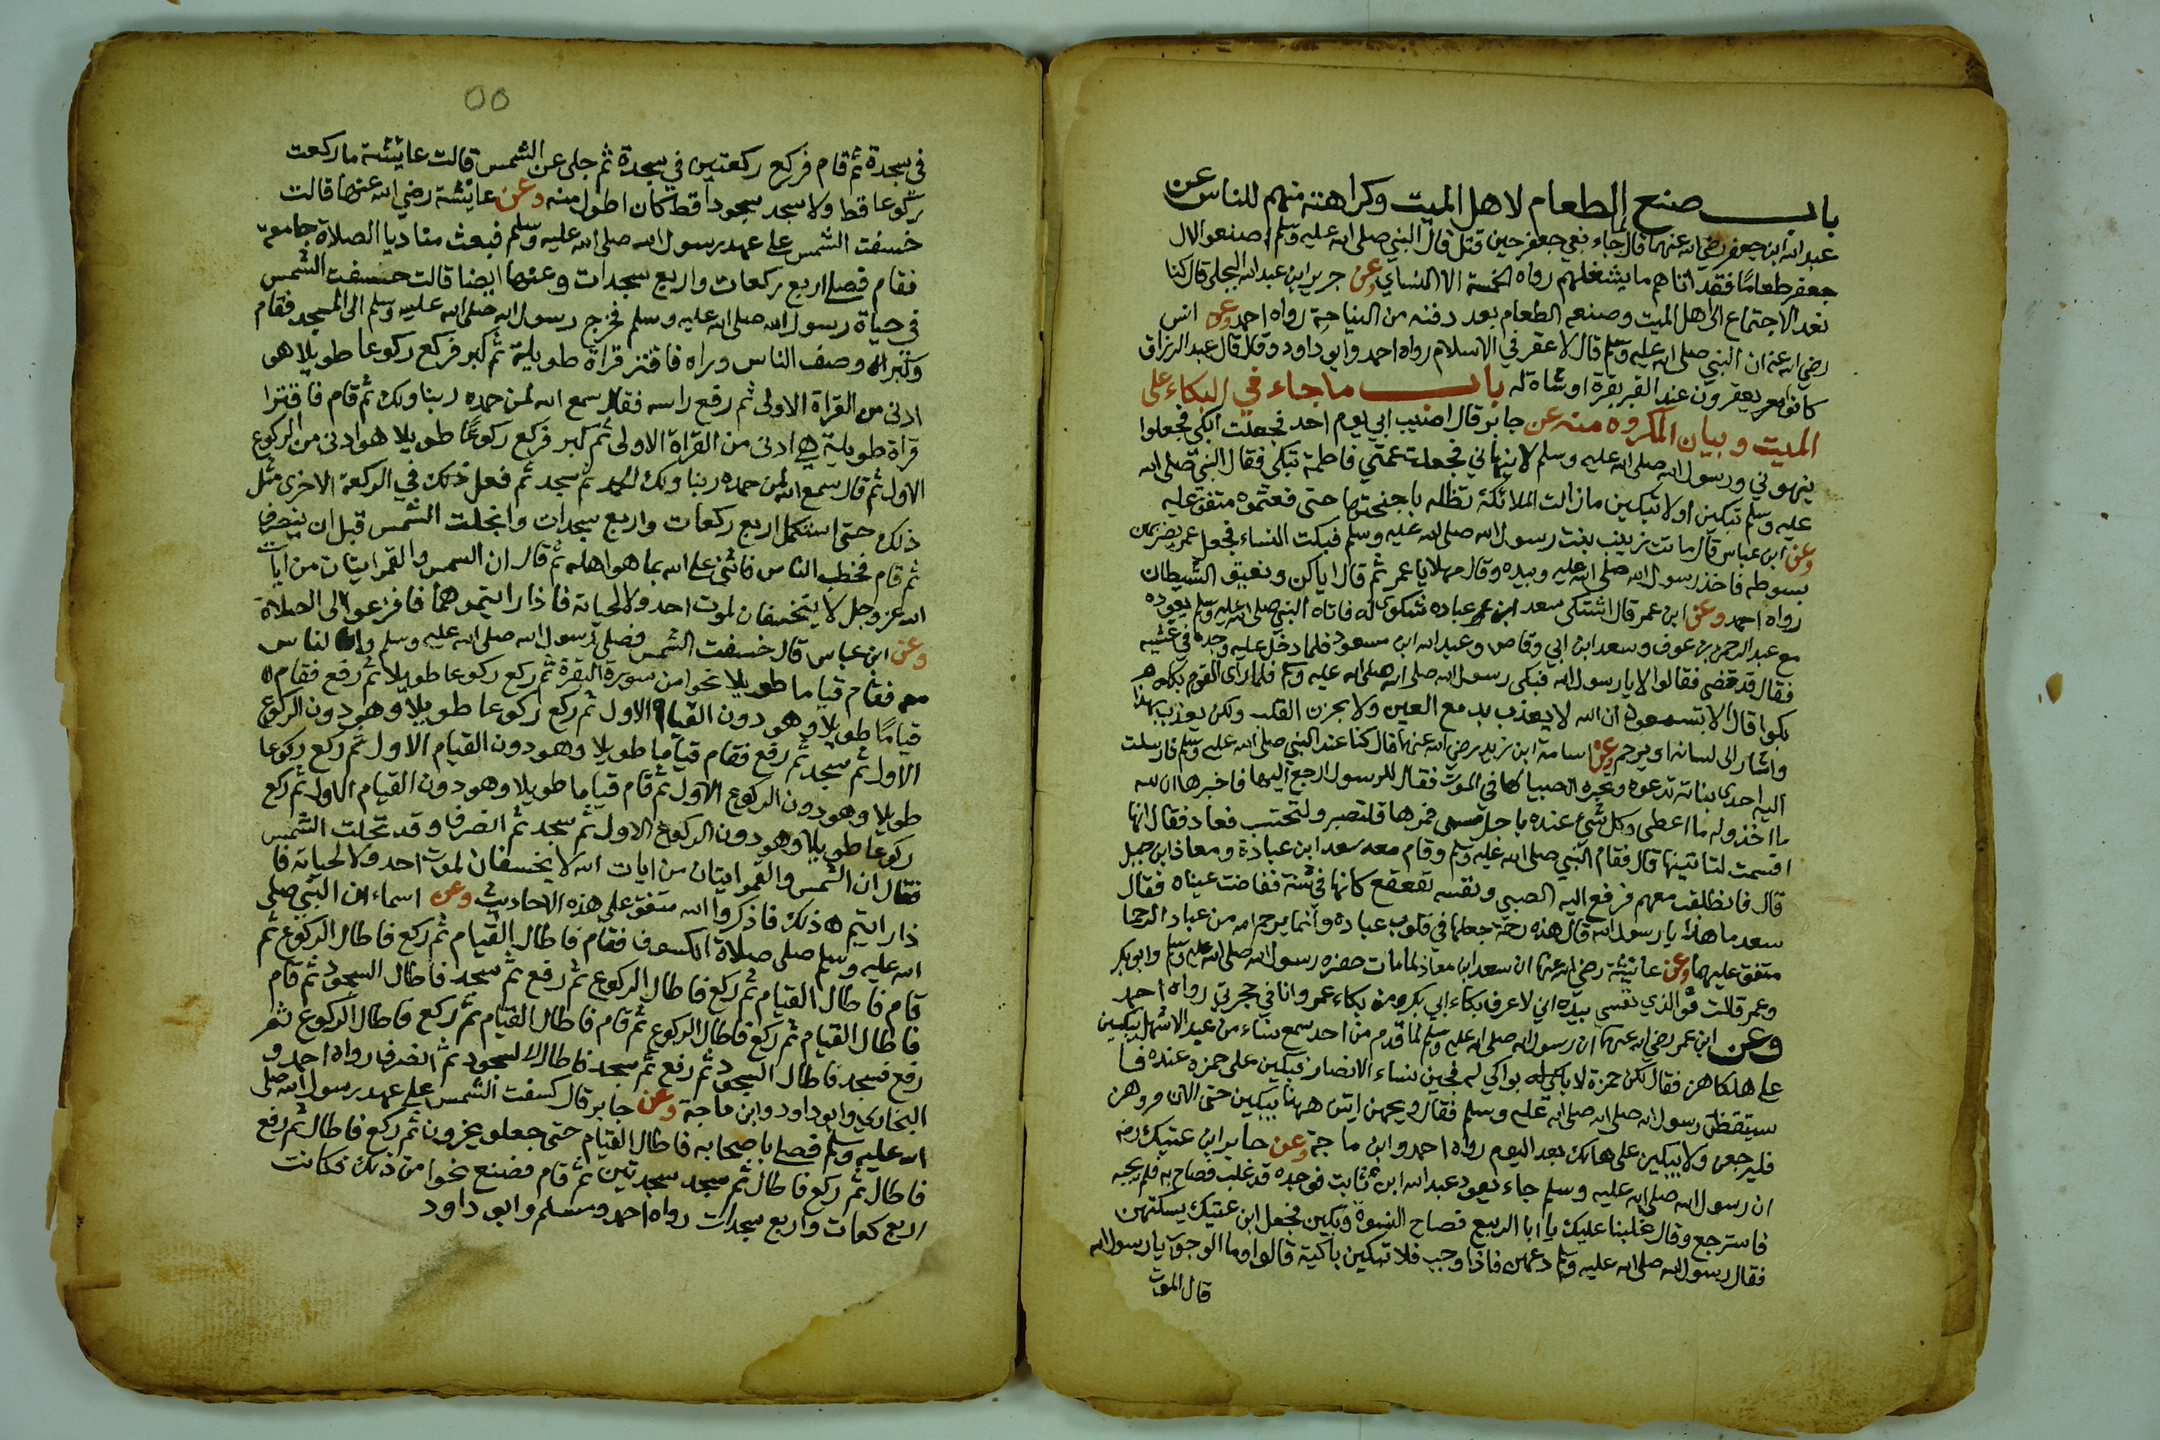 باب صنع الطعام لاهل الميت وكراهته منهم للناس عن
عبد الله ابن جعفر رضي الله عنهما قال جاء نعي جعفر حين قتل قال النبي صلى الله عليه وسلم اصنعوا لال
جعفر طعامًا فقد اتاهم ما يشغلهم رواه الخمسة الا النساي وعن جرير ابن عبد الله البجلي قال كنا
نعد الاجتماع الى اهل الميت وصنعه الطعام بعد دفنه من النياحة رواه احمد وعن انس
رضي الله عنه ان النبي صلى الله عليه وسلم قال لا عقر في الاسلام رواه احمد وابو داود وقال قال عبد الرزاق
كانوا يعقرون عند القبر بقرة او شاة له باب ما جاء في البكاء على
الميت وبيان المكروه منه عن جابر قال اصيب ابي يوم احد فجعلت ابكي فجعلوا
ينهوني ورسول الله صلى الله عليه وسلم لا ينهاني فجعلت عمتي فاطمة تبكي فقال النبي صلى الله
عليه وسلم تبكين او لا تبكين ما زالت الملائكة تظله باجنحتها حتى فعتموه متفق عليه
وعن ابن عباس قال ماتت زينب بنت رسول الله صلى الله عليه وسلم فبكت النساء فجعل عمر يضربهن
بسوطه فاخذ رسول الله صلى الله عليه وبيده وقال مهلا يا عمر ثم قال اياكن ونعيق الشيطان
رواه احمد وعن ابن عمر قال اشتكى سعد ابن عباده شكوى له فاتاه النبي صلى الله عليه وسلم يعوده
مع عبد الرحمن بن عوف وسعد ابن ابي وقاص وعبد الله ابن مسعود فلما دخل عليه وجده في غشيه
فقال قد قضى فقالوا لا يا رسول الله فبكى رسول الله صلى الله عليه وسلم فلما راى القوم بكاه
بكوا قال الا تسمعون ان الله لا يعذب بدمع العين ولا بحزن القلب ولكن يعذب بهذا
واشار الى لسانه او يرحم وعن اسامة ابن زيد رضي الله عنهما قال كنا عند النبي صلى الله عليه وسلم فارسلت
اليه احدى بناته تدعوه وتخبره ان صبيا لها في الموت فقال للرسول ارجع اليها فاخبرها ان لله
ما اخذ وله ما اعطى وكل شيء عنده باجل مسمى فمرها فلتصبر ولتحتسب فعاد فقال انها
اقسمت لتاتينها قال فقام النبي صلى الله عليه وسلم وقام معه سعد ابن عبادة ومعاذ ابن جبل
قال فانطلقت معهم فرفع اليه الصبي ونفسه تقعقع كانها في شنة ففاضت عيناه فقال
سعد ما هذا يا رسول الله قال هذه رحمة جعلها في قلوب عباده وانما يرحم الله من عباد الرحما
متفق عليها وعن عائشة رضي الله عنها ان سعد ابن معاذ لما مات حضره رسول الله صلى الله عليه وسلم وابو بكر
وعمر قالت فوالذي نفسي بيده اني لاعرف بكاء ابي بكر من بكاء عمر وانا في حجرتي رواه احمد
وعن ابن عمر رضي الله عنهما ان رسول الله صلى الله عليه وسلم لما قدم من احد سمع نساء من عبد الاشهل يبكين
على هلكاهن فقال لكن حمزة لا بواكي له فجين نساء الانصار فبكين على حمزه عنده فا
ستيقظ رسول الله صلى الله عليه وسلم فقال ويحهن انتن ههنا يبكين حتى الان مروهن
فليرجعن ولا يبكين على هالك بعد اليوم رواه احمد وابن ماجة وعن جابر ابن عتيك رضه
ان رسول الله صلى الله عليه وسلم جاء يعود عبد الله ابن ثابت فوجده قد غلب فصاح به فلم يجبه
فاسترجع وقال غلبنا عليك يا ابا الربيع فصاح النسوة وبكين فجعل ابن عتيك يسكتهن
فقال رسول الله صلى الله عليه وسلم دعهن فاذا وجب فلا تبكين باكية قالوا وما الوجوب يا رسول الله
قال الموت
٥٥
في سجدة ثم قام فركع ركعتين في سجدة ثم جلى عن الشمس قالت عائشة ما ركعت
ركوعا قط ولا سجد سجودا قط كان اطول منه وعن عائشة رضي الله عنها قالت
خسفت الشمس على عهد رسول الله صلى الله عليه وسلم فبعث مناديا الصلاة جامعة
فقام فصلى اربع ركعات واربع سجدات وعنها ايضا قالت خسفت الشمس
في حياة رسول الله صلى الله عليه وسلم فخرج رسول الله صلى الله عليه وسلم الى المسجد فقام
وكبر وصف الناس وراه فاقترا قراة طويلة ثم كبر فركع ركوعا طويلا هو
ادنى من القراة الاولى ثم رفع راسه فقال سمع الله لمن حمده ربنا ولك ثم قام فاقترا
قراة طويلة هي ادنى من القراة الاولى ثم كبر فركع ركوعًا طويلا هو ادنى من الركوع
الاول ثم قال سمع الله لمن حمده ربنا ولك الحمد ثم سجد ثم فعل ذلك في الركعة الاخرى مثل
ذلك حتى استكمل اربع ركعات واربع سجدات وانجلت الشمس قبل ان ينصرف
ثم قام فخطب الناس فاثنى على الله بما هو اهله ثم قال ان الشمس والقمر ايتان من ايات
الله عز وجل لا ينخسفان لموت احد ولا لحياته فاذا رايتموهما فافزعوا الى الصلاة
وعن ابن عباس قال خسفت الشمس فصلى رسول الله صلى الله عليه وسلم والناس
معه فقام قياما طويلا نحوا من سورة البقرة ثم ركع ركوعا طويلا ثم رفع فقام
قيامًا طويلا وهو دون القيام الاول ثم ركع ركوعا طويلا وهو دون الركوع
الاول ثم سجد ثم رفع فقام قياما طويلا وهو دون القيام الاول ثم ركع ركوعا
طويلا وهو دون الركوع الاول ثم قام قياما طويلا وهو دون القيام الاول ثم ركع
ركوعا طويلا وهو دون الركوع الاول ثم سجد ثم انصرف وقد تجلت الشمس
فقال ان الشمس والقمر ايتان من ايات الله لا يخسفان لموت احد ولا لحياته فا
ذا رايتم ذلك فاذكروا الله متفق على هذه الاحاديث وعن اسماء ان النبي صلى
الله عليه وسلم صلى صلاة الكسوف فقام فاطال القيام ثم ركع فاطال الركوع ثم
قام فاطال القيام ثم ركع فاطال الركوع ثم رفع ثم سجد فاطال السجود ثم قام
فاطال القيام ثم ركع فاطال الركوع ثم قام فاطال القيام ثم ركع فاطال الركوع ثم
رفع فسجد فاطال السجود ثم رفع ثم سجد فاطال السجود ثم انصرف رواه احمد و
البخاري وابو داود وابن ماجة وعن جابر قال كسفت الشمس على عهد رسول الله صلى
الله عليه وسلم فصلى باصحابه فاطال القيام حتى جعلو يخرون ثم ركع فاطال ثم رفع
فاطال ثم ركع فاطال ثم سجد سجدتين ثم قام فصنع نحوا من ذلك فكانت
اربع كعات واربع سجدات رواه احمد ومسلم وابو داود